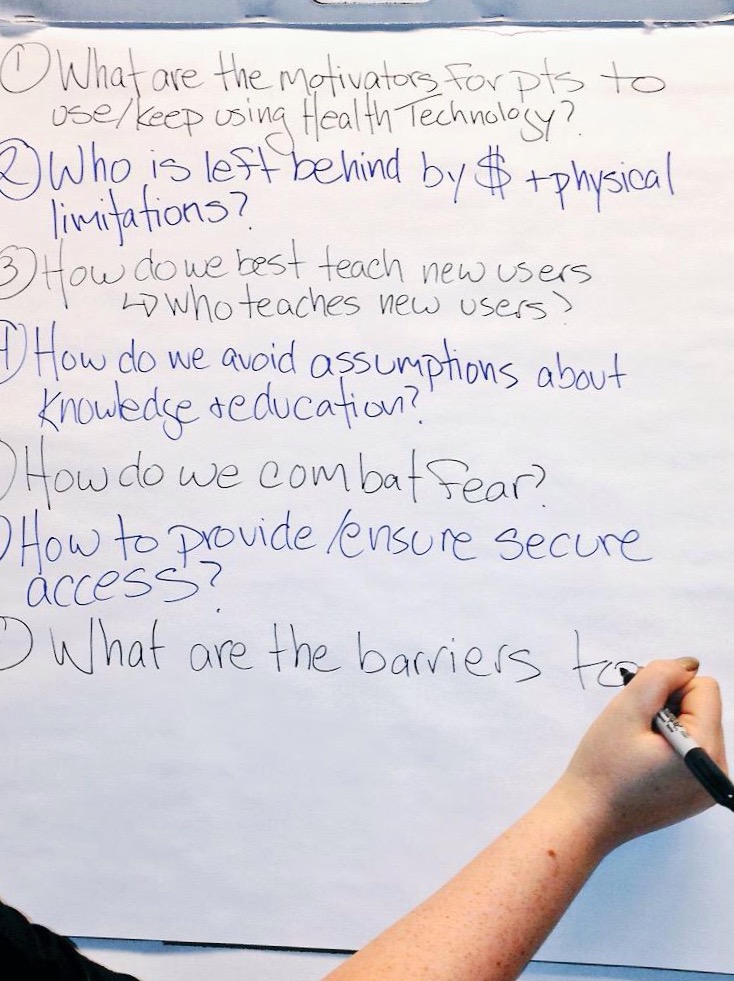 ① What are the motivators for pts to
use/keep using Health Technology?
② Who is left behind by $ + physical
limitations?
③ How do we best teach new users
↳ Who teaches new users?
4) How do we avoid assumptions about
knowledge + education?
) How do we combat fear?
) How to provide/ensure secure
access?
) What are the barriers to